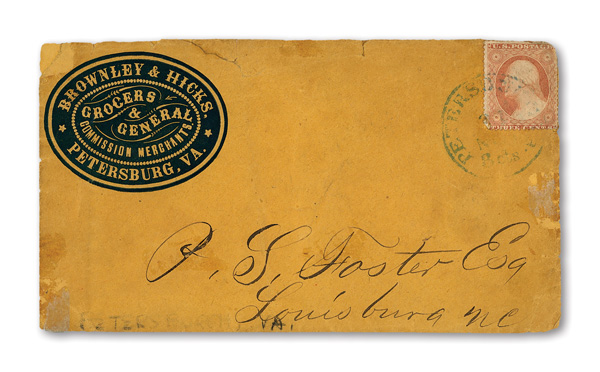 BROWNLEY & HICKS,
GROCERS
&
GENERAL
COMMISSION MERCHANTS.
★ PETERSBURG, VA. ★
U.S. POSTAGE
THREE CENTS
PETERSBURG
P. S. Foster Esq
Louisburg NC
VA.